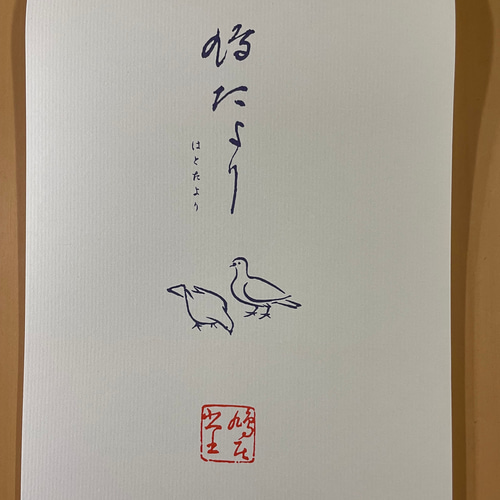 鳩だより
はとだより
鳩居堂